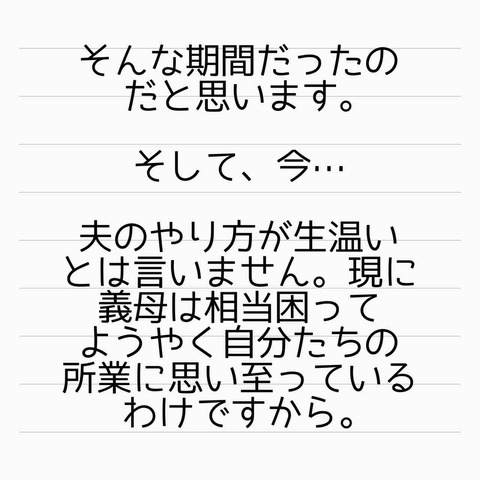 そんな期間だったの
だと思います。
そして、今…
夫のやり方が生温い
とは言いません。現に
義母は相当困って
ようやく自分たちの
所業に思い至っている
わけですから。